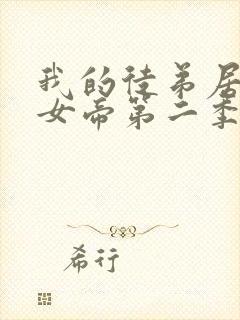 我的徒弟居
女帝第二季
希行